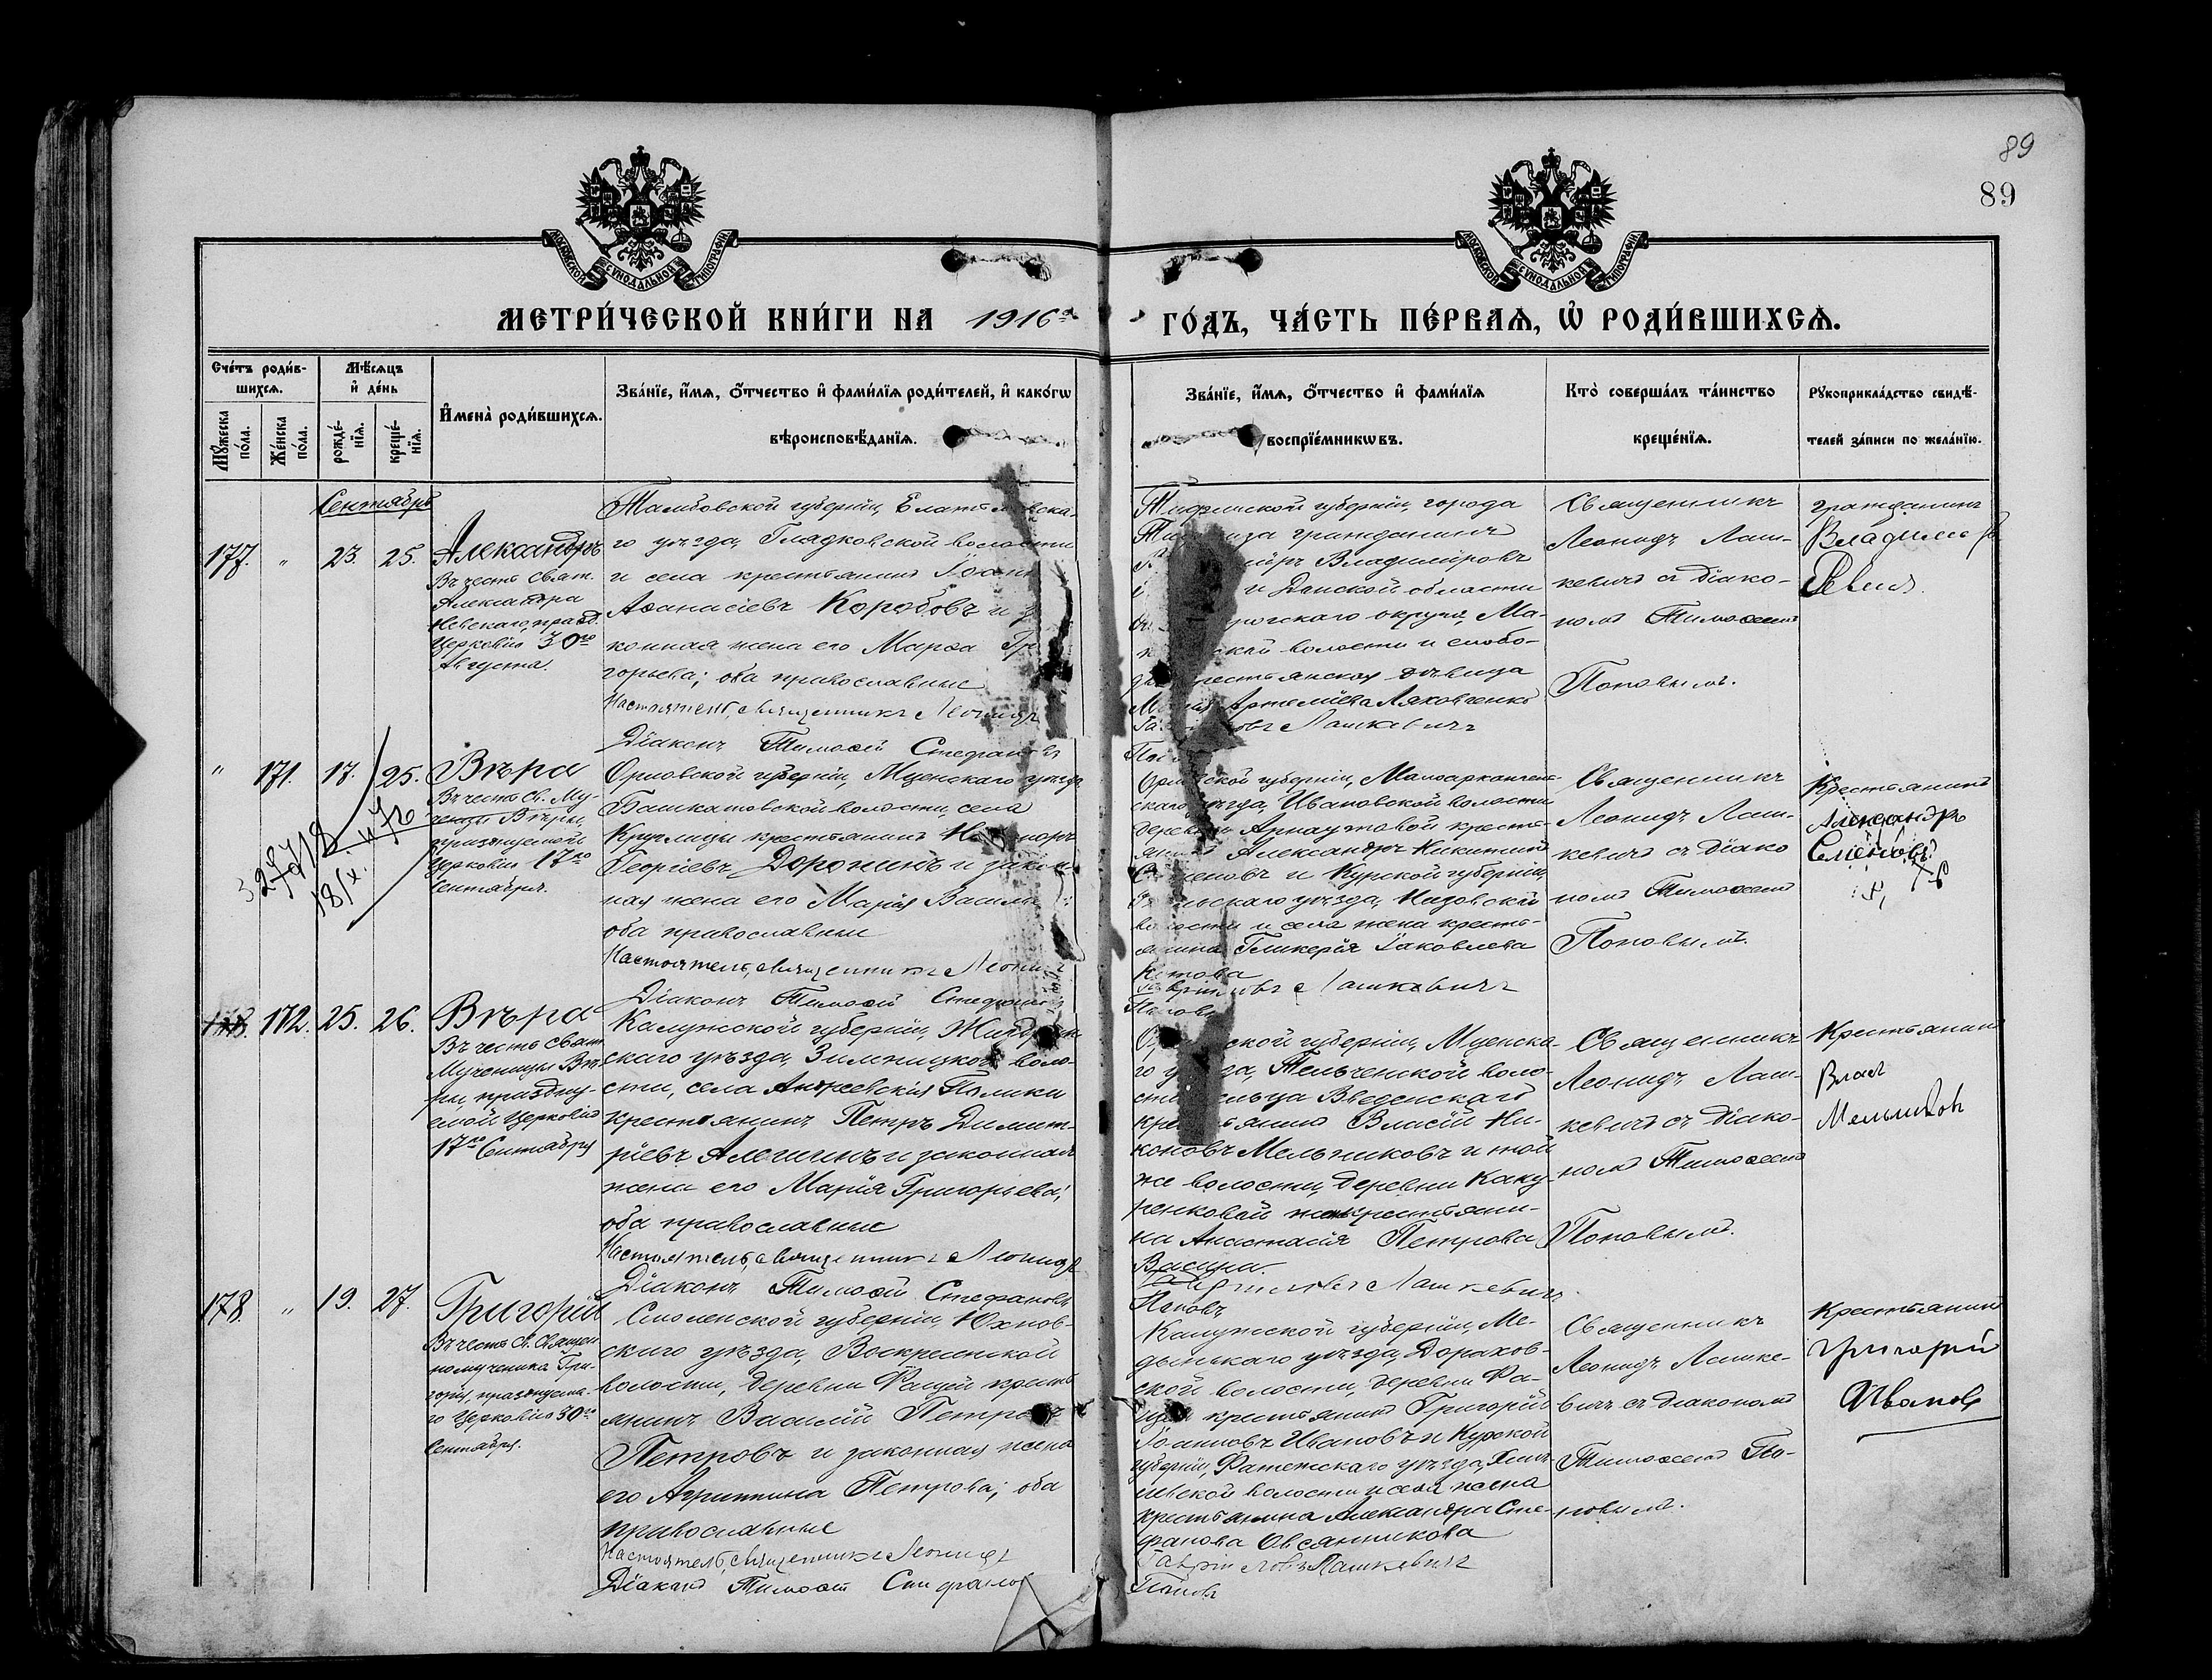 89
89
МОСКОВСКОЙ СѴНОДАЛЬНОЙ ТИПОГРАФІИ
МОСКОВСКОЙ СѴНОДАЛЬНОЙ ТИПОГРАФІИ
МЕТРИ́ЧЕСКОЙ КНИ́ГИ НА 1916й ГО́ДЪ, ЧА́СТЬ ПЕ́РВАѦ, Ѡ҆ РОДИ́ВШИХСѦ.
Сче́тъ роди́в-
шихсѧ.
Мꙋ́жеска
по́ла.
Же́нска
по́ла.
Мѣ́сѧцъ
и҆ де́нь
рожде́-
нїѧ.
креще́-
нїѧ.
И҆мена̀ роди́вшихсѧ.
Зва́нїе, и҆́мѧ, ѻ҆́тчество и҆ фами́лїѧ роди́телей, и҆ како́гѡ
вѣроисповѣ́данїѧ.
Зва́нїе, и҆́мѧ, ѻ҆́тчество и҆ фами́лїѧ
воспрїе́мникѡвъ.
Кто̀ соверша́лъ та́инство
креще́нїѧ.
Рꙋкоприкла́дство свидѣ́-
телей за́писи по жела́нїю.
Сентябрь
177. " 23. 25.
Александръ
Въ честь Свят.
Александра
Невскаго, празд.
Церковію 30го
Августа.
Тамбовской губерніи, Елатомска-
го уѣзда, Гладковской волости
и села крестьянинъ Іоаннъ
Аѳанасіевъ Коробовъ и за-
конная жена его Марѳа Гри-
горьева; оба православные
Настоятель, священникъ Леонидъ
Діаконъ Тимоѳей Стефановъ
Тифлисской губерніи, города
гражданинъ
Владиміровъ
и Донской области
округа, Ма-
волости и слобо-
крестьянская дѣвица
Артеміева Ляховченко
Лашкевичъ
Священникъ
Леонидъ Лаш-
кевичъ съ діако-
номъ Тимоѳеемъ
Поповымъ.
гражданинъ
Владимиръ
" 171. 17. 25.
Вѣра
Въ честь Св. Му-
ченицы Вѣры,
празднуемой
Церковію 17го
Сентября.
Орловской губерніи, Мценскаго уѣзда
Башкатовской волости, села
Круглицы крестьянинъ
Георгіевъ Доронинъ и закон-
ная жена его Марія Василь
оба православные
Настоятель, священникъ Леонидъ
Діаконъ Тимоѳей Стефановъ
Орловской губерніи, Малоархангель-
скаго уѣзда, Ивановской волости
деревни Арнаутовой кресть-
янинъ Александръ Никитинъ
Семеновъ и Курской губерніи,
уѣзда, Низовской
волости и села жена кресть-
янина Гликерія Іаковлева
Гавріиловъ Лашкевичъ
Поповъ
Священникъ
Леонидъ Лаш-
кевичъ съ діако
номъ Тимоѳеемъ
Поповымъ.
Крестьянинъ
Александръ
Семеновъ
172. 25. 26.
Вѣра
Въ честь Свят.
Мученицы Вѣ-
ры, праздну-
емой Церковію
17го Сентября
Калужской губерніи, Жиздрин
скаго уѣзда, Зимницкой воло-
сти, села
крестьянинъ Петръ Димит-
ріевъ Алешинъ и законная
жена его Марія Григорьева;
оба православные
Настоятель, священникъ Леонидъ
Діаконъ Тимоѳей Стефановъ
губерніи, Мценска-
го уѣзда, Тельченской воло-
сти сельца Введенскаго
крестьянинъ Власій Ни-
коновъ Мельниковъ и той
же волости, деревни Каку-
ренковой жена крестьяни-
на Анастасія Петрова
Васина.
Гавріиловъ Лашкевичъ
Поповъ
Священникъ
Леонидъ Лаш-
кевичъ съ діако-
номъ Тимоѳеемъ
Поповымъ.
Крестьянинъ
Власъ
Мельников
178. " 19. 27.
Григорій
Въ честь Св. Священ
номученика Гри-
горія, празднуема-
го Церковію 30го
Сентября.
Смоленской губерніи, Юхнов-
скаго уѣзда, Воскресенской
волости, деревни крестья
янинъ Василій Петровъ
Петровъ и законная жена
его Агриппина Петрова; оба
православные
Настоятель, священникъ Леонидъ
Діаконъ Тимоѳей Стефановъ
Калужской губерніи, Ме-
дынскаго уѣзда, Дорахов-
ской волости, деревни
крестьянинъ Григорій
Іоанновъ Ивановъ и Курской
губерніи, Фатежскаго уѣзда,
волости и села жена
крестьянина Александра Сте-
фанова Овсянникова
Гавріиловъ Лашкевичъ
Поповъ
Священникъ
Леонидъ Лашке-
вичъ съ діакономъ
Тимоѳеемъ По-
повымъ.
Крестьянинъ
Григорій
Ивановъ